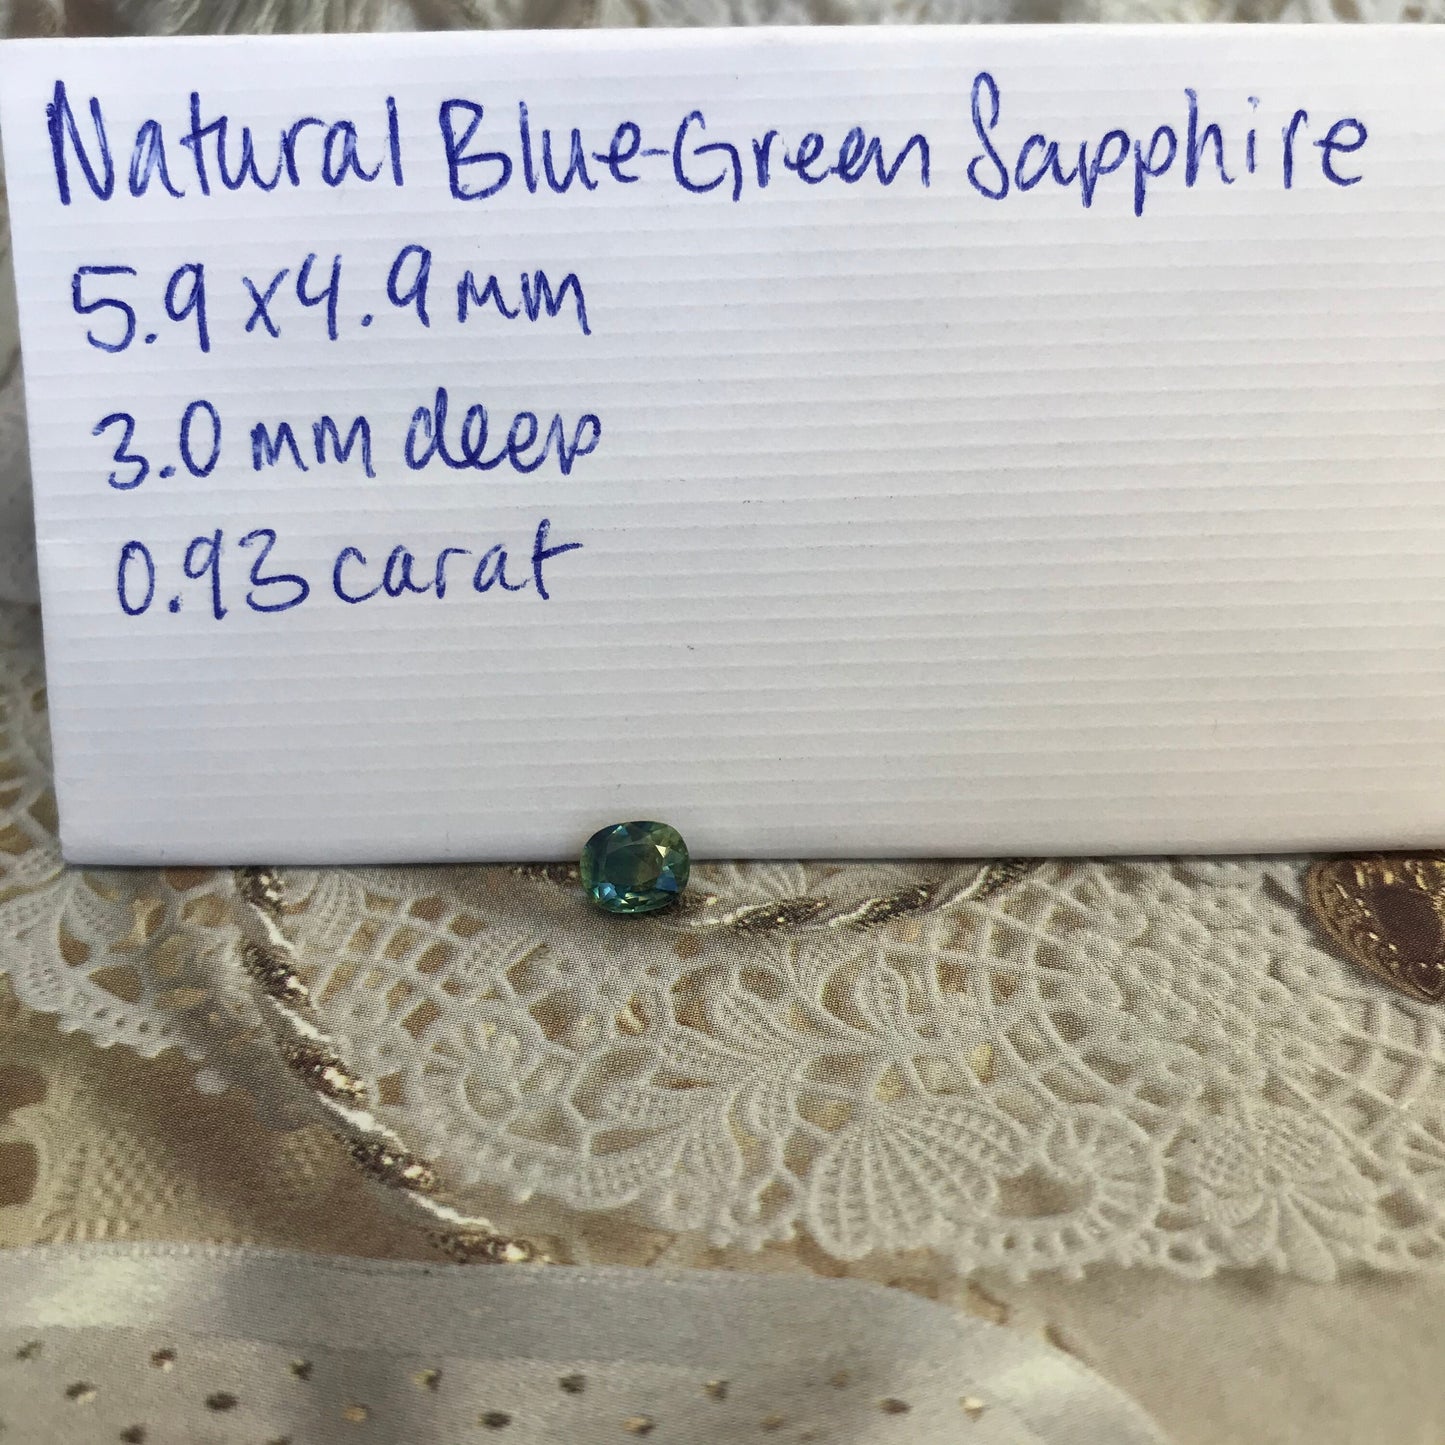 Natural Blue-Green Sapphire
5.9x4.9mm
3.0mm deep
0.93 carat